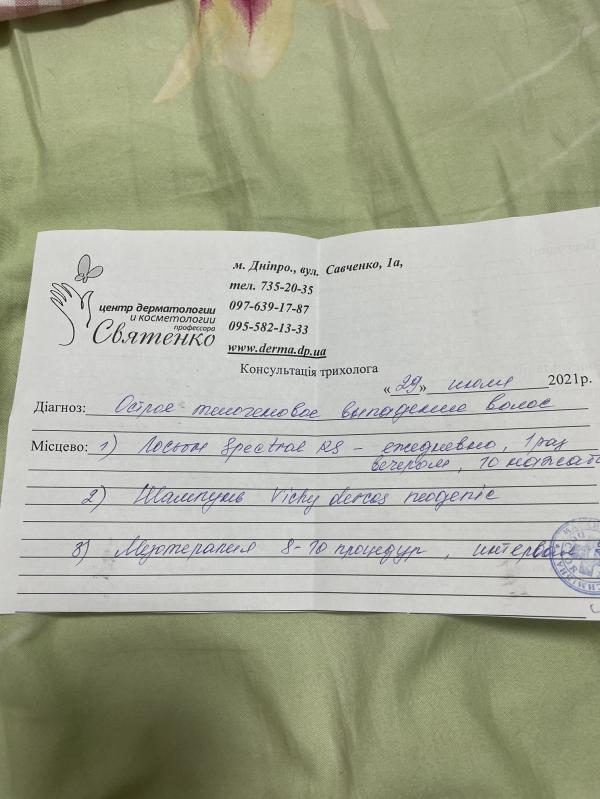 центр дерматологии
и косметологии
профессора
Святенко
м. Дніпро., вул. Савченко, 1а,
тел. 735-20-35
097-639-17-87
095-582-13-33
www.derma.dp.ua
Консультація трихолога
«29» июля 2021р.
Діагноз: Острое телогеновое выпадение волос
Місцево: 1) Лосьон Spectral RS - ежедневно, 1 раз
вечером, 10 нажат
2) Шампунь Vichy dercos neogenic
3) Мезотерапия 8-10 процедур, интервал